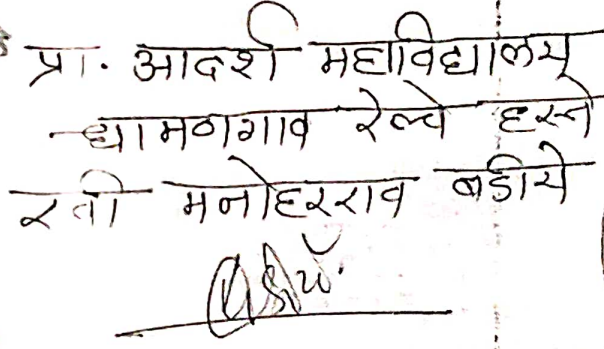 प्रा. आदर्श महाविद्यालय
धामणगाव रेल्वे हस्ते
रवी मनोहरराव बडीये